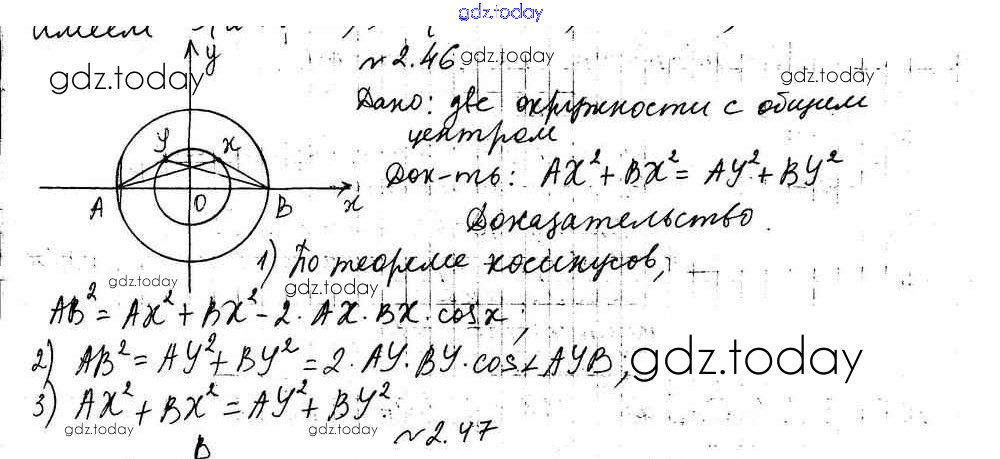 gdz.today
имеем
у
№2.46.
gdz.today
gdz.today
gdz.today
Дано: две окружности с общим
центром
У х
Док-ть: AX² + BX² = AY² + BY²
A O B x
Доказательство.
1) По теореме косинусов,
gdz.today
gdz.today
AB² = AX² + BX² - 2 · AX · BX · cos x;
2) AB² = AY² + BY² = 2 · AY · BY · cos∠AYB;
gdz.today
3) AX² + BX² = AY² + BY²
gdz.today
gdz.today
№2.47
B